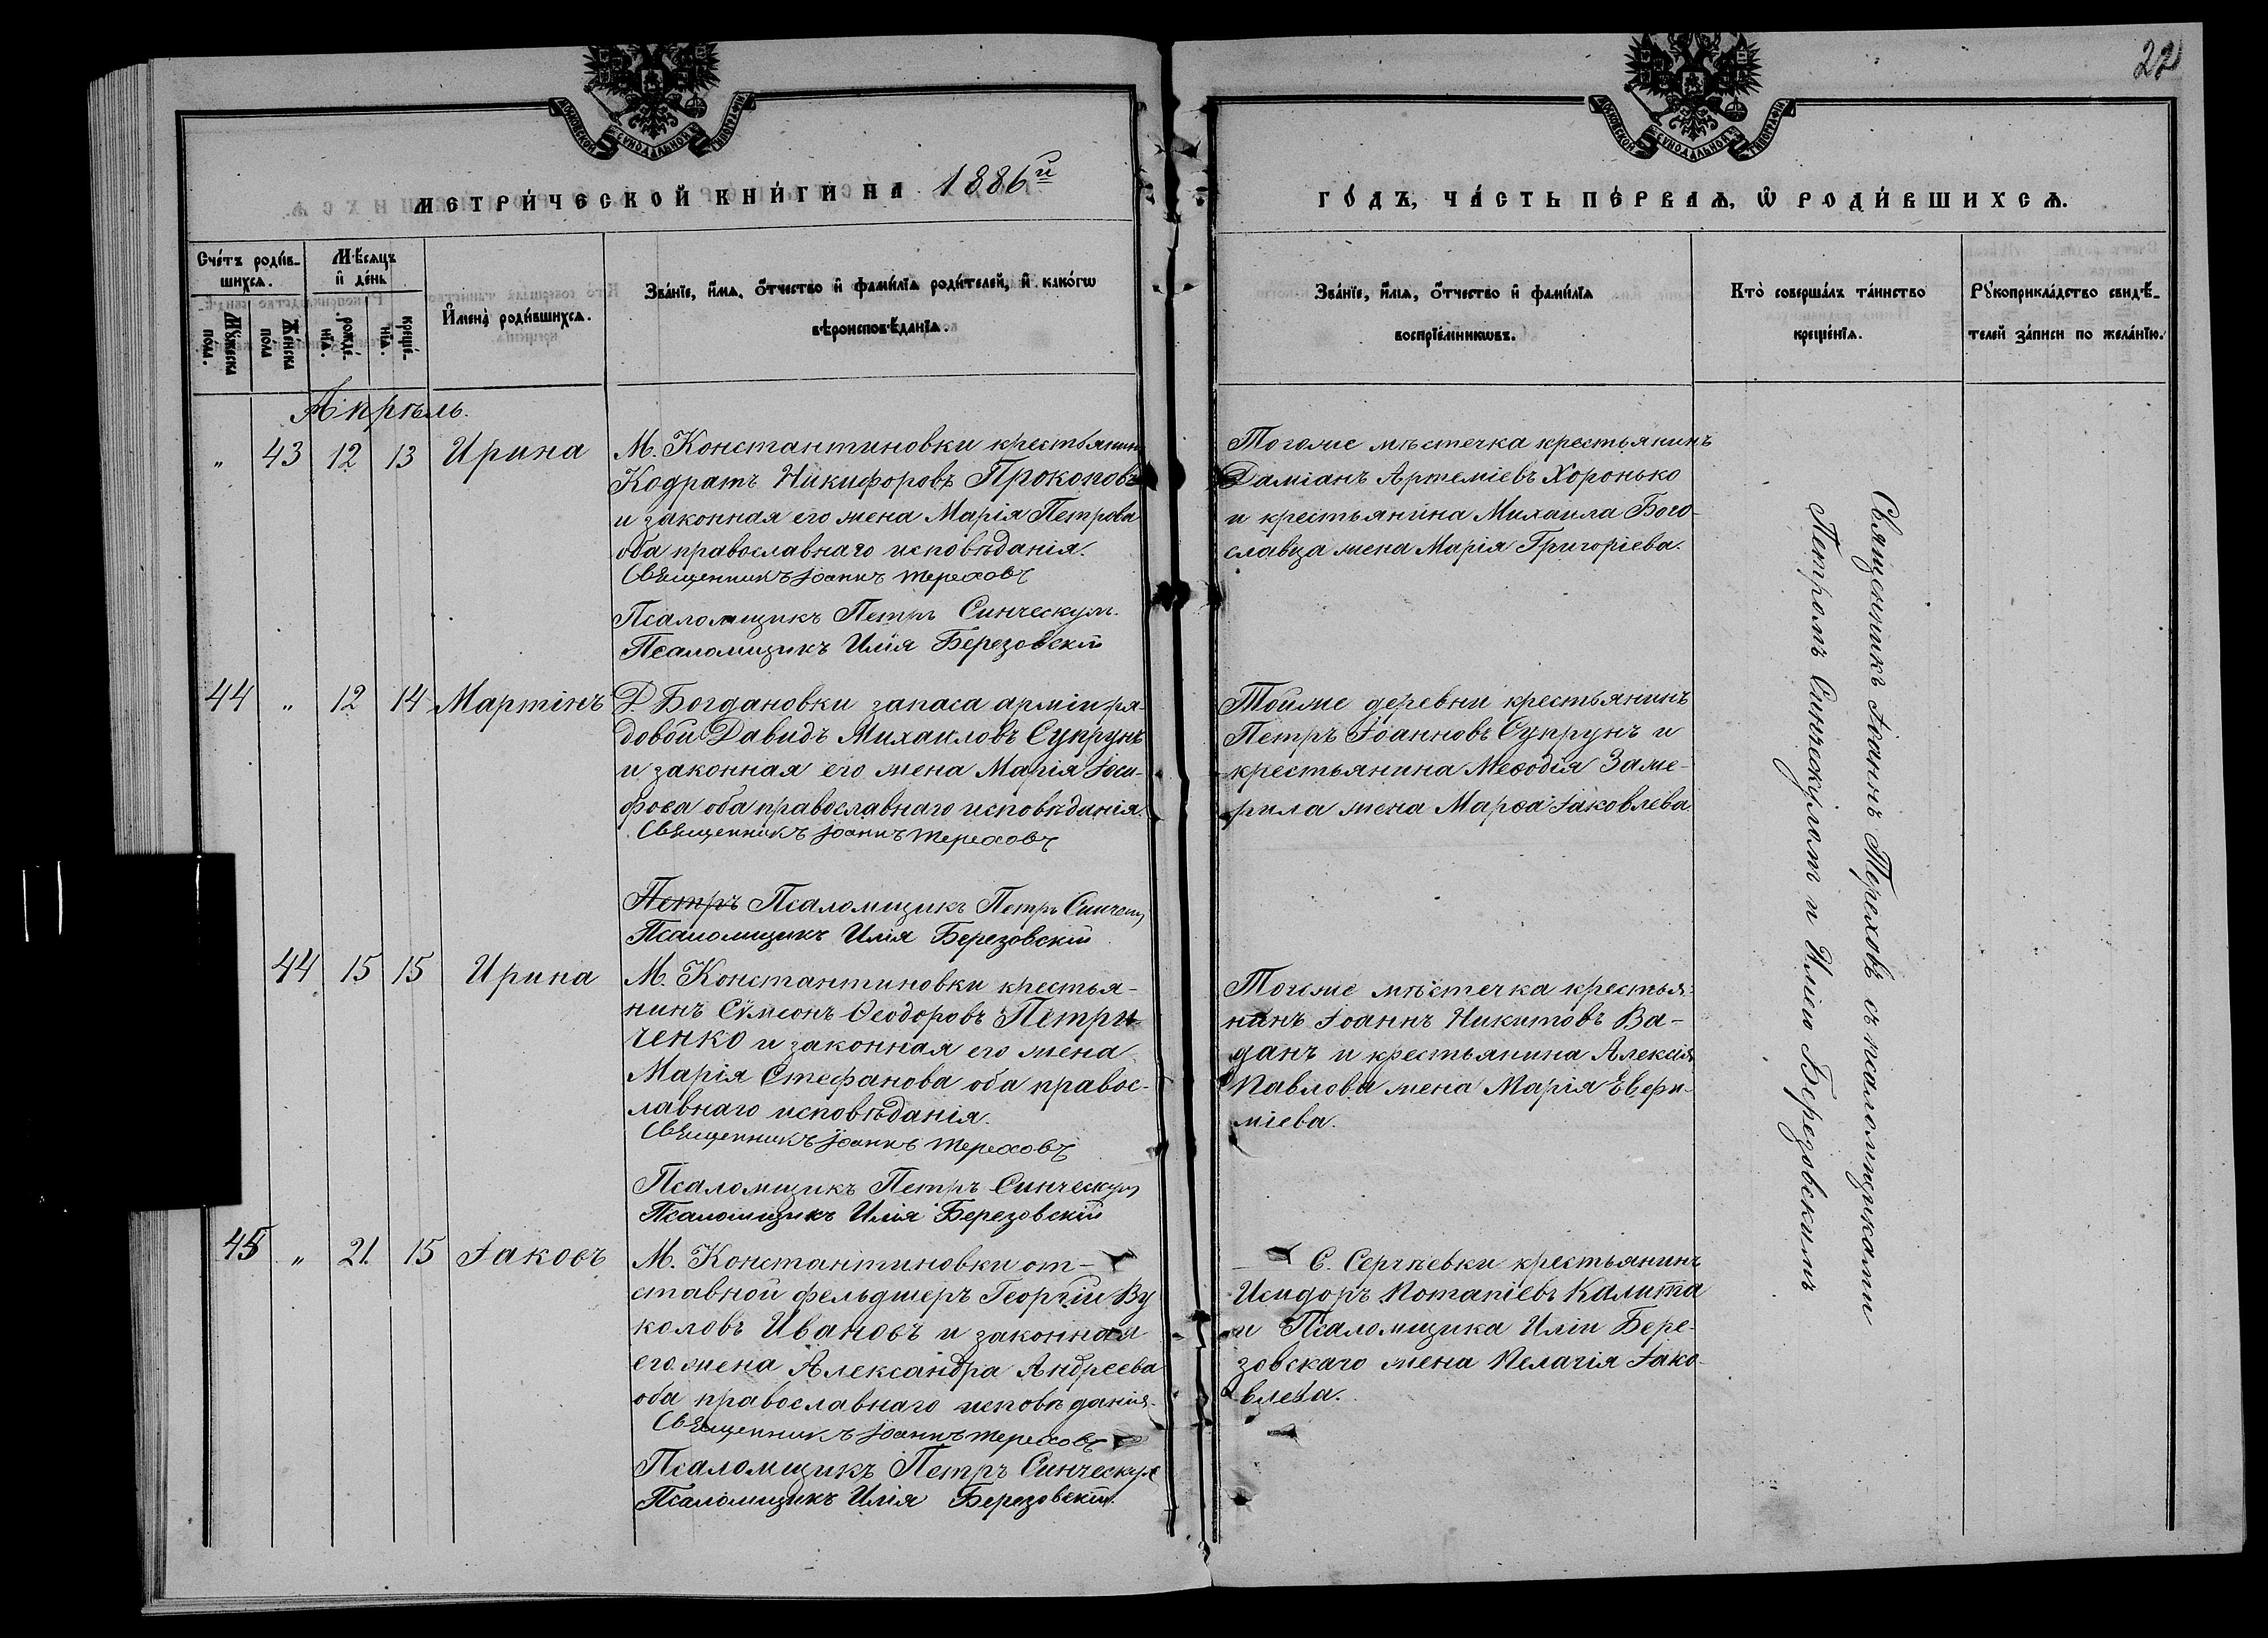 22
МОСКОВСКОЙ СУНОДАЛЬНОЙ ТИПОГРАФІИ
МОСКОВСКОЙ СУНОДАЛЬНОЙ ТИПОГРАФІИ
МЕТРИ́ЧЕСКОЙ КНИ́ГИ НА 1886й
ГО́ДЪ, ЧА́СТЬ ПЕ́РВАѦ, Ѽ РОДИ́ВШИХСѦ.
Сче́тъ роди́в-
шихсѧ.
Мꙋ́жеска по́ла.
Же́нска по́ла
Мѣ́сѧцъ
и҆ де́нь
рожде́-нїѧ.
креще́-нїѧ.
И҆мена̀ роди́вшихсѧ.
Зва́нїе, и҆́мѧ, ѻ҆́тчество и҆ фами́лїѧ роди́телей, и҆ како́гѡ
вѣроисповѣ́данїѧ.
Зва́нїе, и҆́мѧ, ѻ҆́тчество и҆ фами́лїѧ
воспрїе́мникѡвъ.
Кто̀ соверша́лъ та́инство
креще́нїѧ.
Рꙋкоприкла́дство свидѣ́-
телей за́писи по жела́нїю.
Апрѣль.
„ 43 12 13 Ирина
М. Константиновки крестьянинъ
Кодратъ Никифоровъ Прокоповъ
и законная его жена Марія Петрова
оба православнаго исповѣданія.
Священникъ Іоаннъ Тереховъ
Псаломщикъ Петръ Синческулъ.
Псаломщикъ Илія Березовскій
Тогоже мѣстечка крестьянинъ
Даміанъ Артеміевъ Хоронько
и крестьянина Михаила Бого-
славца жена Марія Григоріева.
44 „ 12 14 Мартінъ
Д. Богдановки запаса арміи ря-
довой Давидъ Михаиловъ Супрунъ
и законная его жена Марія Іоси-
фова оба православнаго исповѣданія.
Священникъ Іоаннъ Тереховъ
Петръ Псаломщикъ Петръ
Псаломщикъ Илія Березовскій
Тойже деревни крестьянинъ
Петръ Іоанновъ Супрунъ и
крестьянина Меѳодія Заме-
рила жена Марѳа Іаковлева
44 15 15 Ирина
М. Константиновки крестья-
нинъ Сѵмсонъ Ѳеодоровъ Петри
ченко и законная его жена
Марія Стефанова оба правос-
лавнаго исповѣданія.
Священникъ Іоаннъ Тереховъ
Псаломщикъ Петръ Синческулъ
Псаломщикъ Илія Березовскій
Тогоже мѣстечка крестья-
нинъ Іоаннъ Никитовъ Ва-
данъ и крестьянина Алексія
Павлова жена Марія Евфи-
міева.
45 „ 21. 15 Іаковъ
М. Константиновки от-
ставной фельдшеръ Георгій Ву
коловъ Ивановъ и законная
его жена Александра Андреева
оба православнаго исповѣданія.
Священникъ Іоаннъ Тереховъ
Псаломщикъ Петръ Синческулъ
Псаломщикъ Илія Березовскій.
С. Сергѣевки крестьянинъ
Исидоръ Потапіевъ Калита
и Псаломщика Иліи Бере-
зовскаго жена Пелагія Іако-
влева.
Священникъ Іоаннъ Тереховъ съ псаломщиками
Петромъ Синческуломъ и Иліею Березовскимъ